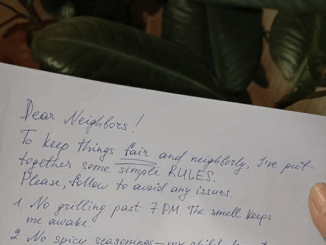 Dear Neighbors!
To keep things fair and neighborly, I've put
together some simple RULES.
Please, follow to avoid any issues.
1. No grilling past 7 PM The smell keeps
me awake.
2. No spicy seasonings – my